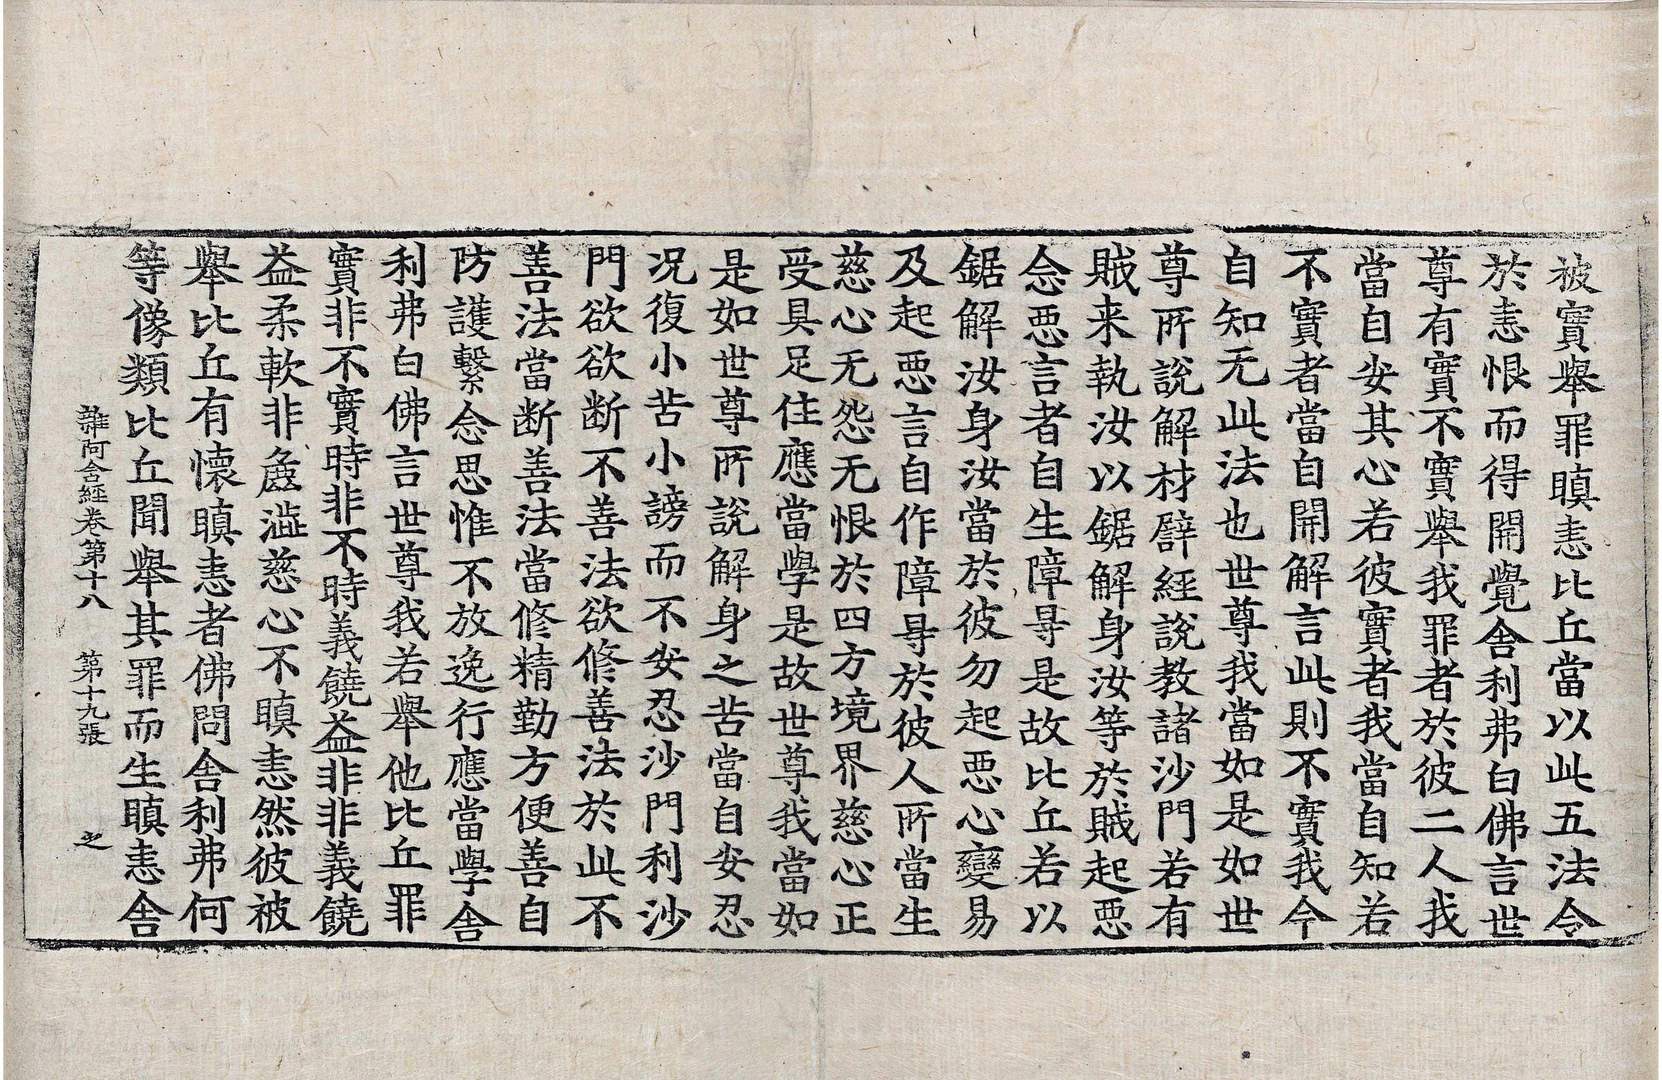 被實舉罪瞋恚比丘當以此五法令
於恚恨而得開覺舍利弗白佛言世
尊有實不實舉我罪者於彼二人我
當自安其心若彼實者我當自知若
不實者當自開解言此則不實我今
自知无此法也世尊我當如是如世
尊所說解材譬經說教諸沙門若有
賊来執汝以鋸解身汝等於賊起悪
念悪言者自生障㝵是故比丘若以
鋸解汝身汝當於彼勿起悪心變易
及起悪言自作障㝵於彼人所當生
慈心无怨无恨於四方境界慈心正
受具足住應當學是故世尊我當如
是如世尊所說解身之苦當自安忍
况復小苦小謗而不安忍沙門利沙
門欲欲断不善法欲修善法於此不
善法當断善法當修精勤方便善自
防護繫念思惟不放逸行應當學舍
利弗白佛言世尊我若舉他比丘罪
實非不實時非不時義饒益非非義饒
益柔軟非麁澁慈心不瞋恚然彼被
舉比丘有懐瞋恚者佛問舍利弗何
等像類比丘聞舉其罪而生瞋恚舍
雜阿含經卷第十八 第十九張